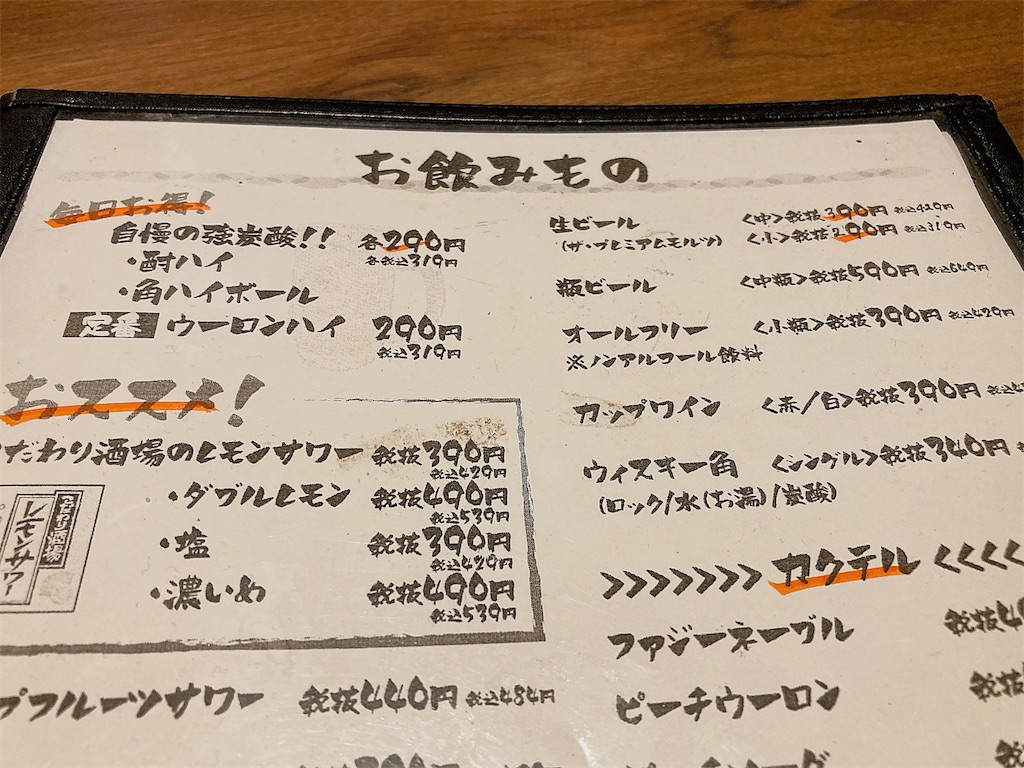 お飲みもの
毎日お得!
自慢の強炭酸!! 各290円
各税込319円
・酎ハイ
・角ハイボール
定番 ウーロンハイ 290円
税込319円
おススメ!
だわり酒場のレモンサワー 税抜390円
税込429円
・ダブルレモン 税抜490円
税込539円
・塩 税抜390円
税込429円
・濃いめ 税抜490円
税込539円
レモンサワー
フルーツサワー 税抜440円 税込484円
生ビール 〈中〉税抜390円 税込429円
(ザ・プレミアムモルツ) 〈小〉税抜290円 税込319円
瓶ビール 〈中瓶〉税抜590円 税込649円
オールフリー 〈小瓶〉税抜390円 税込429円
※ノンアルコール飲料
カップワイン 〈赤/白〉税抜390円
ウィスキー角 〈シングル〉税抜340円
(ロック/水(お湯)/炭酸)
>>>>>>> カクテル <<<<
ファジーネーブル 税抜
ピーチウーロン 税抜